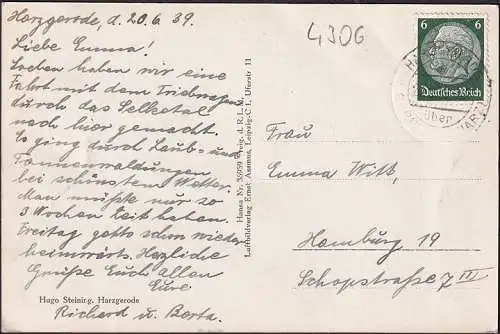 Harzgerode, d. 20.6.39.
Liebe Emma!
Soeben haben wir eine
Fahrt mit dem Triebwagen
durch das Selketal
nach hier gemacht.
Es ging durch Laub- und
Tannenwaldungen
bei schönstem Wetter.
Man müßte nur so
3 Wochen Zeit haben.
Freitag gehts schon wieder
heimwärts. Herzliche
Grüße Euch Allen
Eure
Richard u. Berta.
Hugo Steinig, Harzgerode
Hansa Nr. 36959 Freig. d. R.L.M.
Luftbildverlag Ernst Assmus, Leipzig-C 1, Uferstr 11
4306
6 6
Deutsches Reich
über
Frau
Emma Witt,
Hamburg 19
Schopstraße 7 III